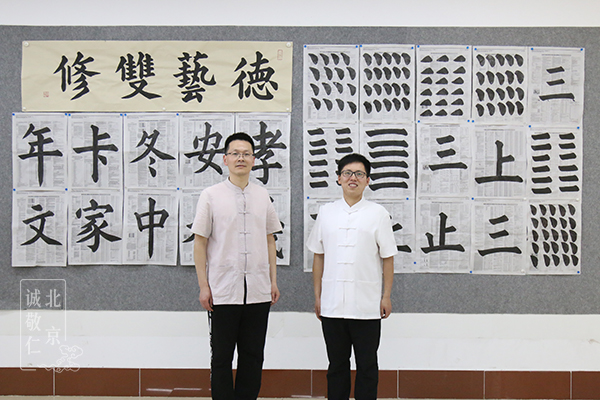 德藝雙修
年卡冬安孝
文家中
三
三上
止三
北京
诚敬仁